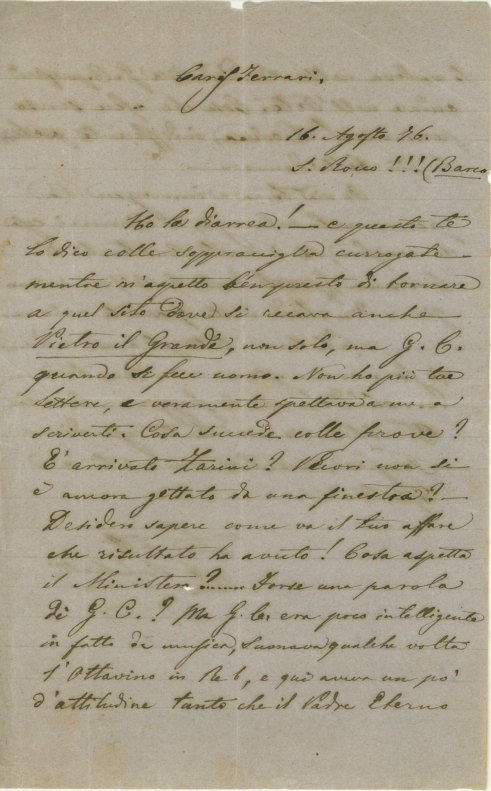 Cariss Ferrari.
16. Agosto 76.
S. Rocco !!! (Barco
Ho la diarrea! — e questo te
lo dico colle sopracciglia currogate
mentre m'aspetto ben presto di tornare
a quel sito dove si recava anche
Pietro il Grande, non solo, ma G. C.
quando si fece uomo. Non ho più tue
lettere, e veramente spettava a me a
scriverti. Cosa succede colle prove?
È arrivato Zarini? Vuori non si
è ancora gettato da una finestra? —
Desidero sapere come va il tuo affare
che risultato ha avuto! Cosa aspetta
il Ministero? Forse una parola
di G. C.? Ma G. C. era poco intelligente
in fatto di musica, suonava qualche volta
l'Ottavino in Re b, e qui aveva un pò
d'attitudine tanto che il Padre Eterno